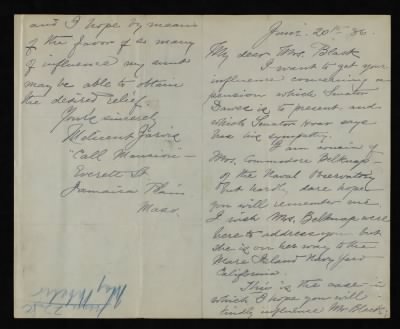 Jan. 20th 86.
My dear Mrs. Black
I want to get your
influence concerning a
pension which Senator
Dawes is to present and
which Senator Hoar says
has his sympathy.
I am cousin of
Mrs. Commodore Belknap -
of the Naval Observatory
but hardly dare hope
you will remember me.
I wish Mrs. Belknap were
here to address you but
she is on her way to the
Mare Island Navy Yard
California.
This is the case in
which I hope you will
kindly influence Mr Black
and I hope by means
of the favor of so many
of influence my aunt
may be able to obtain
the desired relief.
Yours sincerely
Melicent Jarvis
"Call Mansion" -
Everett St
Jamaica Plain
Mass.